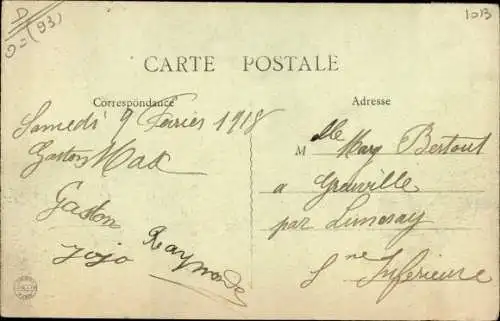 D
D=(93)
1013
CARTE POSTALE
Correspondance
Samedi 9 Février 1918
Gaston Mak
Gaston
Jojo Raymonde
Adresse
M lle Mary Bertout
a Greuville
par Luneray
Sne Inférieure